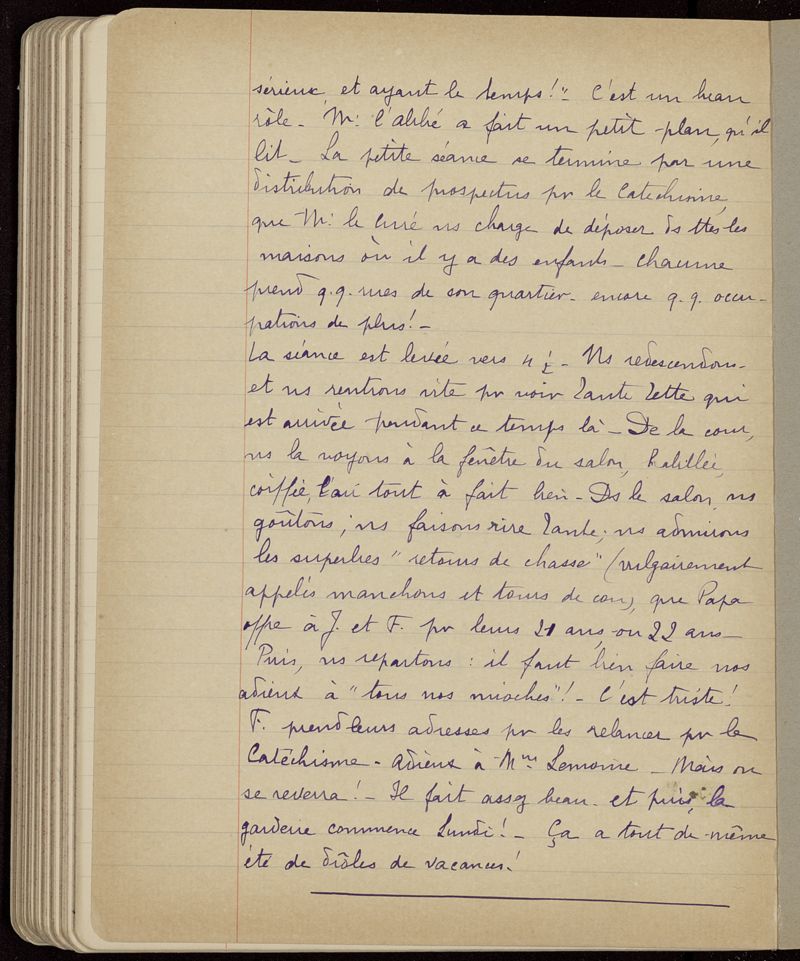 sérieux et ayant le temps!" C'est un beau
rôle - Mr l'abbé a fait un petit plan, qu'il
lit - La petite séance se termine par une
distribution de prospectus pr le Catéchisme,
que Mr le Curé ns charge de déposer ds ttes les
maisons où il y a des enfants - Chacune
prend q.q. rues de son quartier - encore q.q. occu-
pations de plus! -
La séance est levée vers 4 ½ - Ns redescendons -
et ns rentrons vite pr voir Tante Zette qui
est arrivée pendant ce temps là - De la cour,
ns la voyons à la fenêtre du salon, habillée,
coiffée, l'air tout à fait bien - Ds le salon, ns
goûtons ; ns faisons rire Tante ; ns admirons
les superbes "retours de chasse" (vulgairement
appelés manchons et tours de cou), que Papa
offre à J. et F. pr leurs 21 ans ou 22 ans -
Puis, ns repartons : il faut bien faire nos
adieux à "tous nos mioches"! - C'est triste!
F. prend leurs adresses pr les relancer pr le
Catéchisme - Adieux à Mme Lemoine - Mais on
se reverra! - Il fait assez beau - et puis, la
garderie commence Lundi! - Ça a tout de même
été de drôles de vacances!